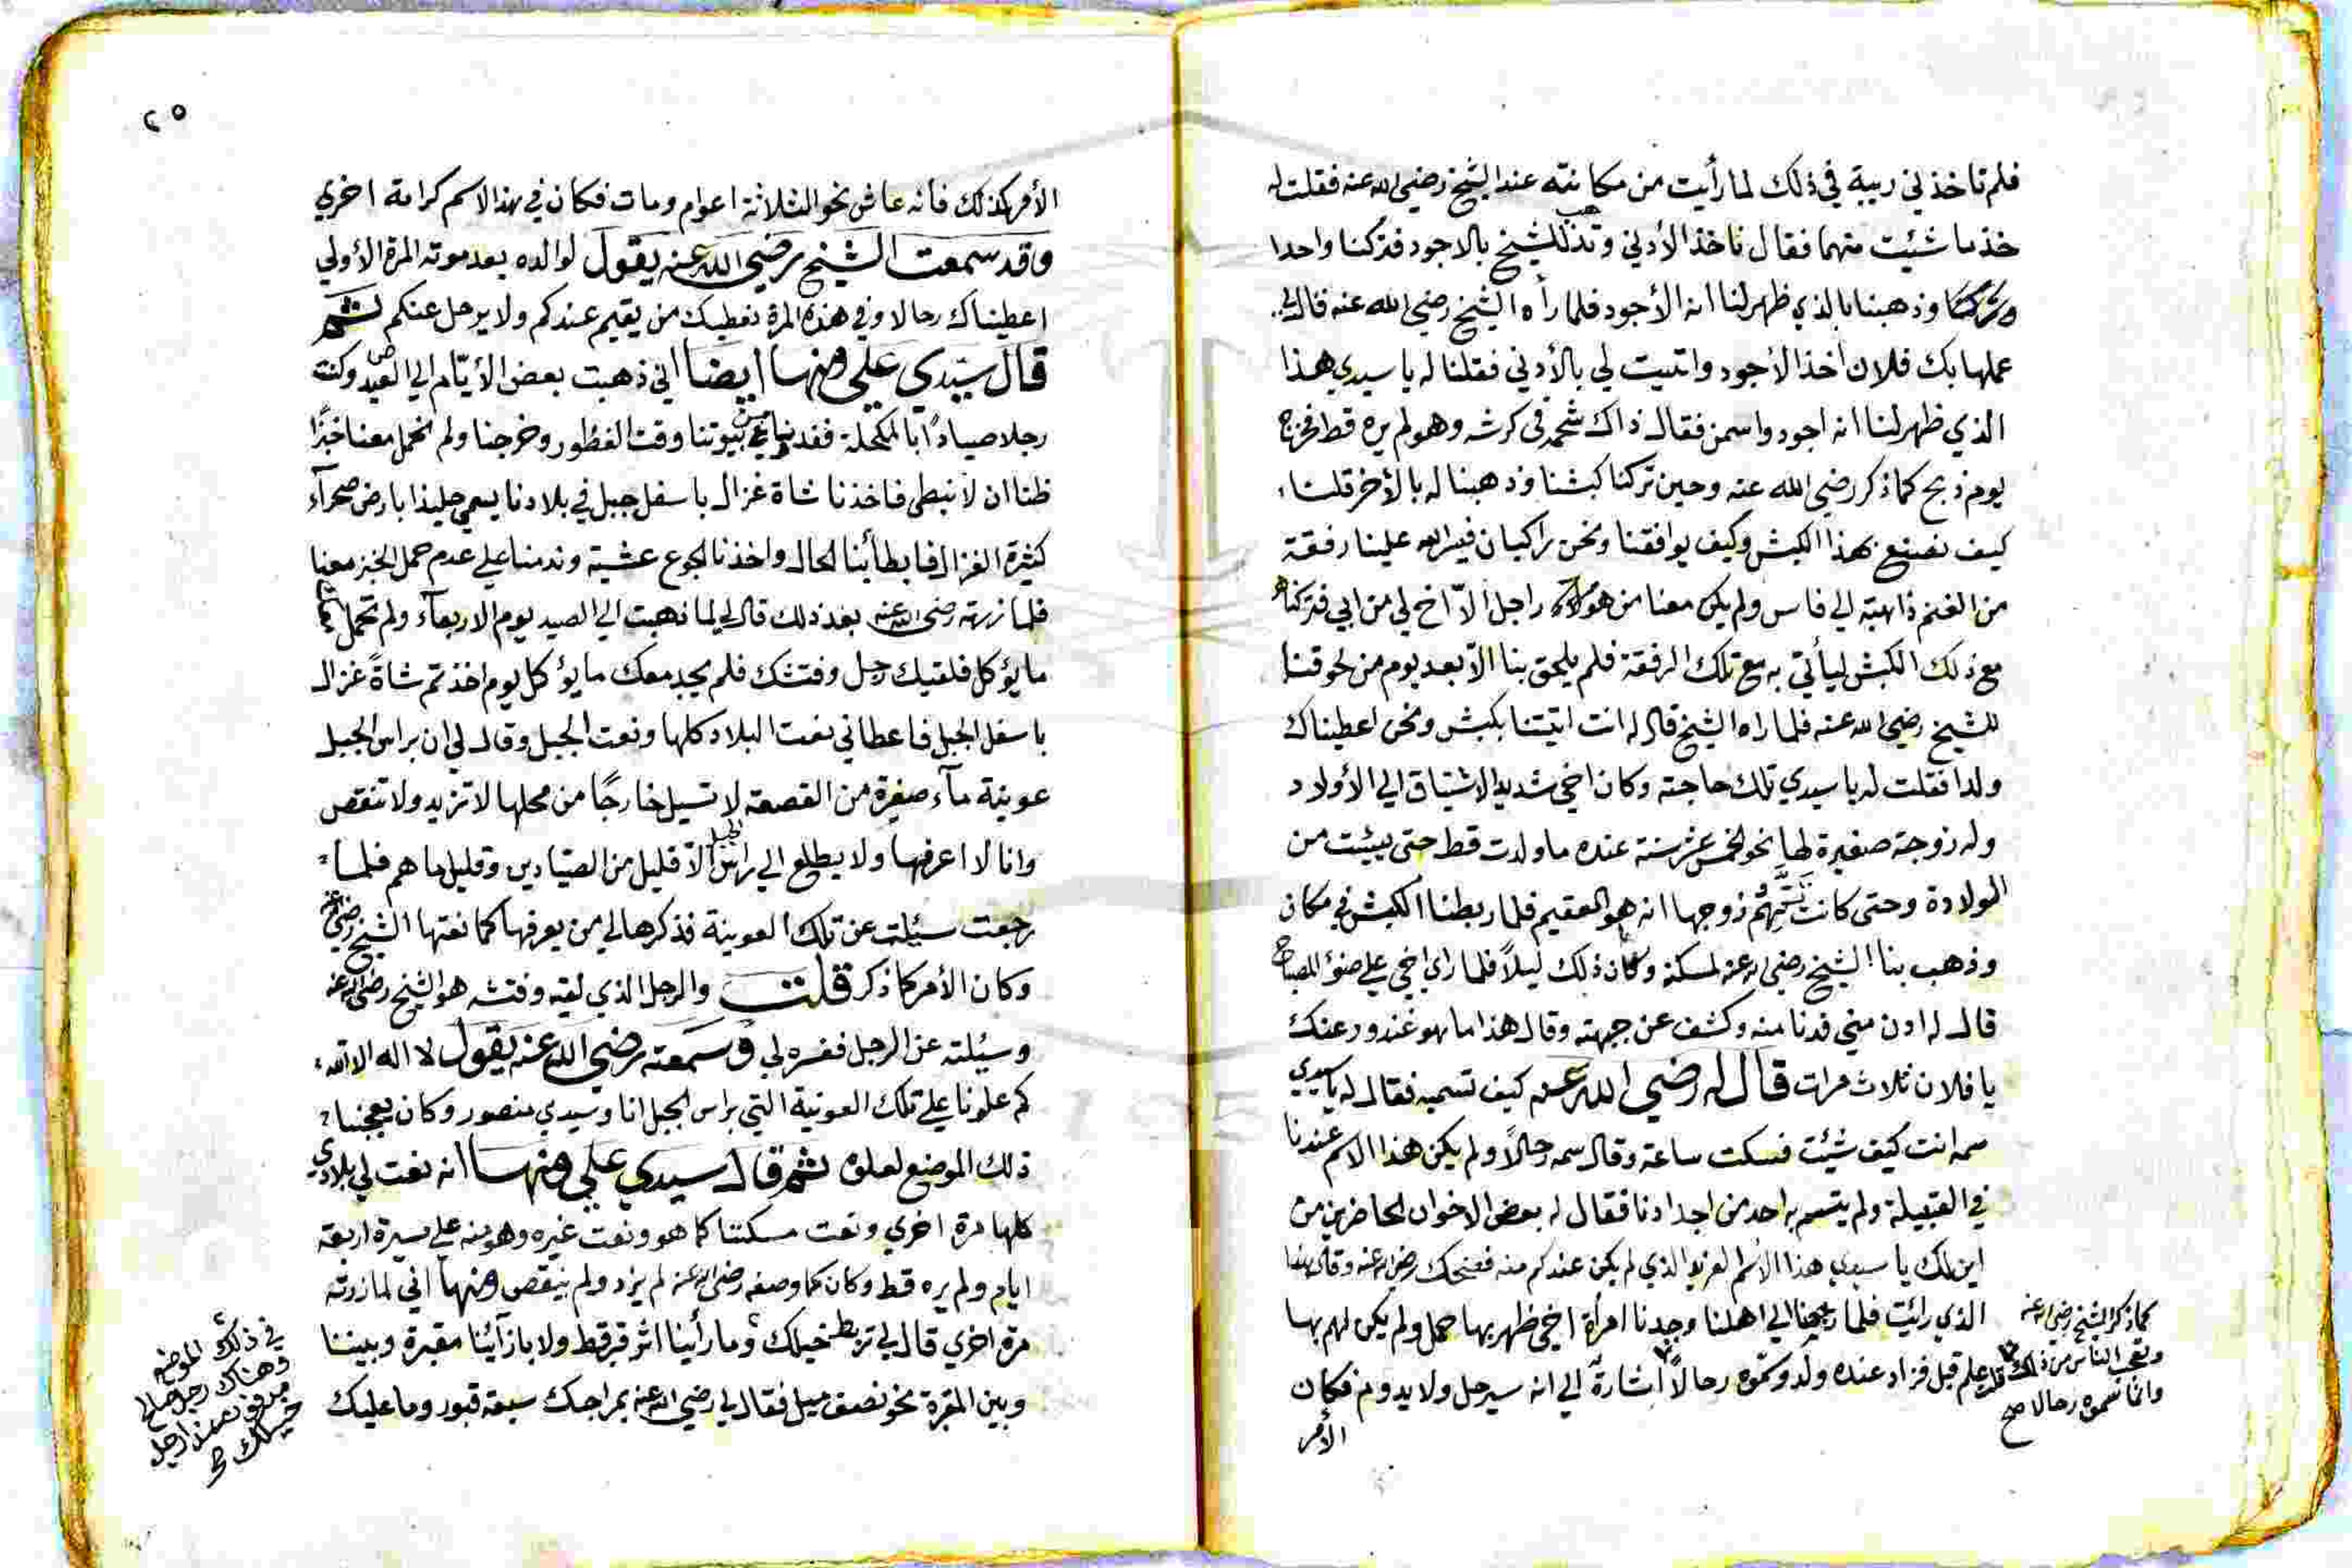 فلم تاخذني ريبة في ذلك لما رأيت من مكانته عند الشيخ رضي الله عنه فقلت له
خذ ما شئيت منهما فقال ناخذ الأدني وتذهب للشيخ بالاجود فتركنا واحدا
وتركنا وذهبنا بالذي ظهر لنا انه الأجود فلما رأه الشيخ رضي الله عنه قال لي
عملها بك فلان اخذ الأجود واتيت لي بالأدني فقلنا له يا سيدي هذا
الذي ظهر لنا انه اجود واسمن فقال ذاك شحمه في كرشه وهو لم يره قط فخرج
يوم ذبح كما ذكر رضي الله عنه وحين تركنا كبشنا وذهبنا له بالأخر قلنا
كيف نصنع بهذا الكبش وكيف يوافقنا ونحن راكبان فيسر الله علينا رفقة
من الغنم ذاهبة الي فاس ولم يكن معنا من هو راجل الاّ اخ لي من ابي فتركناه
مع ذلك الكبش ليأتي به مع تلك الرفقة فلم يلحق بنا الاّ بعد يوم من لحوقنا
للشيخ رضي الله عنه فلما راه الشيخ قال له انت اتيتنا بكبش ونحن اعطيناك
ولدا فقلت له يا سيدي تلك حاجته وكان اخي شديد الاشتياق الي الأولاد
وله زوجة صغيرة لها نحو الخمس عشر سنة عنده ما ولدت قط حتى يئيت من
الولادة وحتى كانت تتهم زوجها انه هو العقيم فلما ربطنا الكبش في مكان
وذهب بنا الشيخ رضي الله عنه لمسكنه وكان ذلك ليلاً فلما راي اخي علي ضوء المصباح
قال له ادن مني فدنا منه وكشف عن جبهته وقال هذا ما هو عند ودعنك
يا فلان ثلاث مرات قال له رضي الله عنه كيف تسميه فقال له يا سيدي
سمه انت كيف شئيت فسكت ساعة وقال سمه رحالاً ولم يكن هذا الاسم عندنا
في القبيلة ولم يتسم به احد من اجدادنا فقال له بعض الاخوان الحاضرين من
اين لك يا سيدي هذا الأسم الغريب الذي لم يكن عندكم منه فضحك رضي الله عنه وقال هذا
الذي رائيت فلما رجعنا الي اهلنا وجدنا امرأة اخي ظهر بها حمل ولم يكن لهم بها
علم قبل فزاد عنده ولد وسموه رحالاً اشارة الي انه سيرحل ولا يدوم فكان
الأمر
كما ذكر الشيخ رضي الله عنه
وتعجب الناس من ذلك
وانما سموه رحالا صح
٢٥
الأمر كذلك فانه عاش نحو الثلاثة اعوام ومات فكان في هذا الاسم كرامة اخري
وقد سمعت الشيخ رضي الله عنه يقول لوالده بعد موته المرة الأولي
اعطيناك رحالا وفي هذه المرة نعطيك من يقيم عندكم ولا يرحل عنكم ثم
قال سيدي علي ومنها ايضا اني ذهبت بعض الأيّام الي الصيد وكنت
رجلا صيادًا بالمكحلة فغدينا في بيوتنا وقت الفطور وخرجنا ولم نحمل معنا خبزًا
ظنا ان لا نبطي فاخذنا شاة غزال باسفل جبل في بلادنا يسمي جليذا بارض صحرآء
كثيرة الغزال فابطأبنا الحال واخذنا الجوع عشية وندمنا علي عدم حمل الخبز معنا
فلما زرته رضي الله عنه بعد ذلك قال لي لما ذهبت الي الصيد يوم الاربعآء ولم تحمل معك
ما يؤكل فلقيك رجل وفتشك فلم يجد معك ما يؤكل يوم اخذتم شاةً غزال
باسفل الجبل فاعطاني نعت البلاد كلها ونعت الجبل وقال لي ان براس الجبل
عوينة مآء صغيرة من القصعة لا تسيل خارجًا من محلها لا تزيد ولا تنقص
وانا لا اعرفها ولا يطلع الي راس الجبل الا قليل من الصيّادين وقليل ما هم فلما
رجعت سئيلت عن تلك العوينة فذكرها لي من يعرفها كما نعتها الشيخ رضي الله عنه
وكان الأمر كما ذكر قلت والرجل الذي لقيه وفتشه هو الشيخ رضي الله عنه
وسئيلته عن الرجل ففسره لي وسمعته رضي الله عنه يقول لا اله الا الله
كم علونا علي تلك العوينة التي براس الجبل انا وسيدي منصور وكان يعجبنا
ذلك الموضع لعلوه ثم قال سيدي علي ومنها انه نعت لي بلادي
كلها مرة اخري ونعت مسكننا كما هو ونعت غيره وهو منه علي مسيرة اربعة
ايام ولم يره قط وكان كما وصفه رضي الله عنه لم يزد ولم ينقص ومنها اني لما زرته
مرة اخري قال لي تربط خيلك وما رأينا اثر قبر قط ولا بازآئنا مقبرة وبيننا
وبين المقبرة نحو نصف ميل فقال لي رضي الله عنه بمراجك سبعة قبور وما عليك
في ذلك الموضع
وهناك رجل صالح
مدفون
خيلك صح